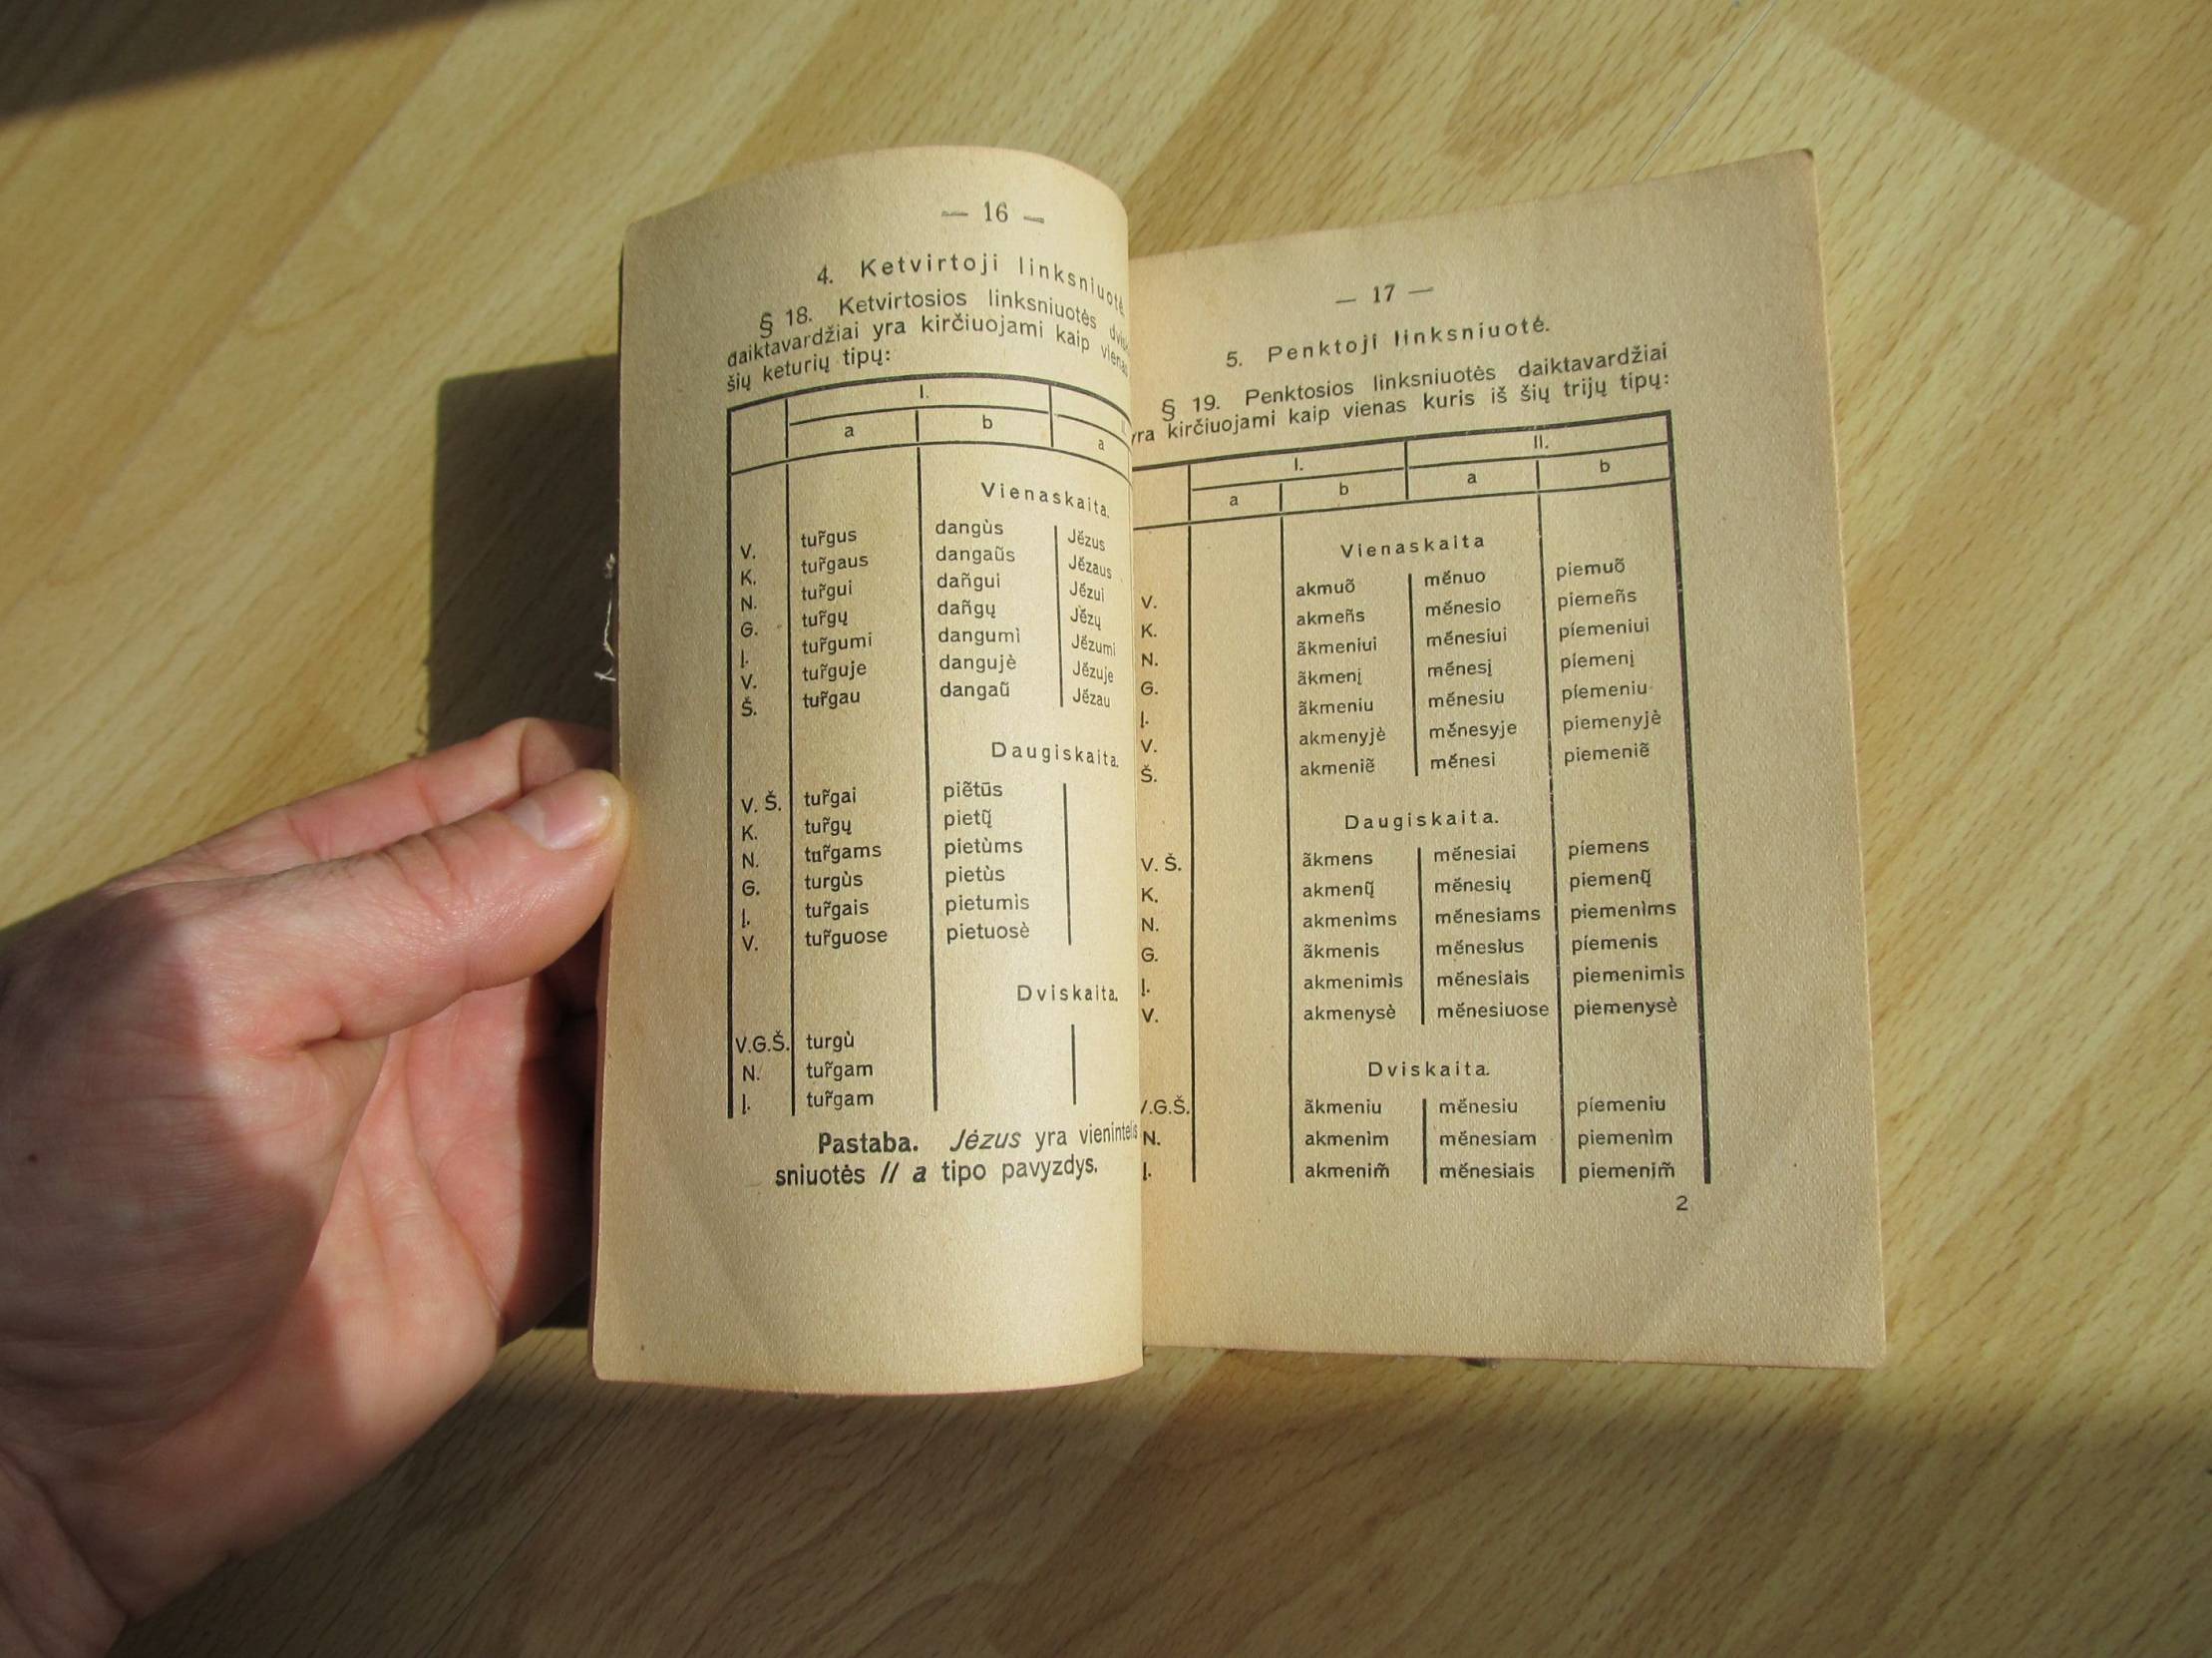 — 16 —
4. Ketvirtoji linksniuotė
§ 18. Ketvirtosios linksniuotės
daiktavardžiai yra kirčiuojami kaip vienas
šių keturių tipų:
I.
a b a
Vienaskaita.
V. tur̃gus dangùs Jė́zus
K. tur̃gaus dangaũs Jė́zaus
N. tur̃gui dañgui Jė́zui
G. tur̃gų dañgų Jė́zų
Į. tur̃gumi dangumì Jė́zumi
V. tur̃guje dangujè Jė́zuje
Š. tur̃gau dangaũ Jė́zau
Daugiskaita.
V. Š. tur̃gai piẽtūs
K. tur̃gų pietų̃
N. tur̃gams pietùms
G. turgùs pietùs
Į. tur̃gais pietumìs
V. tur̃guose pietuosè
Dviskaita.
V.G.Š. turgù
N. tur̃gam
Į. tur̃gam
Pastaba. Jėzus yra vienintelis
sniuotės II a tipo pavyzdys.
— 17 —
5. Penktoji linksniuotė.
§ 19. Penktosios linksniuotės daiktavardžiai
yra kirčiuojami kaip vienas kuris iš šių trijų tipų:
I. II.
a b a b
Vienaskaita
V. akmuõ mė́nuo piemuõ
K. akmeñs mė́nesio piemeñs
N. ãkmeniui mė́nesiui píemeniui
G. ãkmenį mė́nesį píemenį
Į. ãkmeniu mė́nesiu píemeniu
V. akmenyjè mė́nesyje piemenyjè
Š. akmeniẽ mė́nesi piemeniẽ
Daugiskaita.
V. Š. ãkmens mė́nesiai píemens
K. akmenų̃ mė́nesių piemenų̃
N. akmenìms mė́nesiams piemenìms
G. ãkmenis mė́nesius píemenis
Į. akmenimìs mė́nesiais piemenimìs
V. akmenysè mė́nesiuose piemenysè
Dviskaita.
V.G.Š. ãkmeniu mė́nesiu píemeniu
N. akmenìm mė́nesiam piemenìm
Į. akmenim̃ mė́nesiais piemenim̃
2